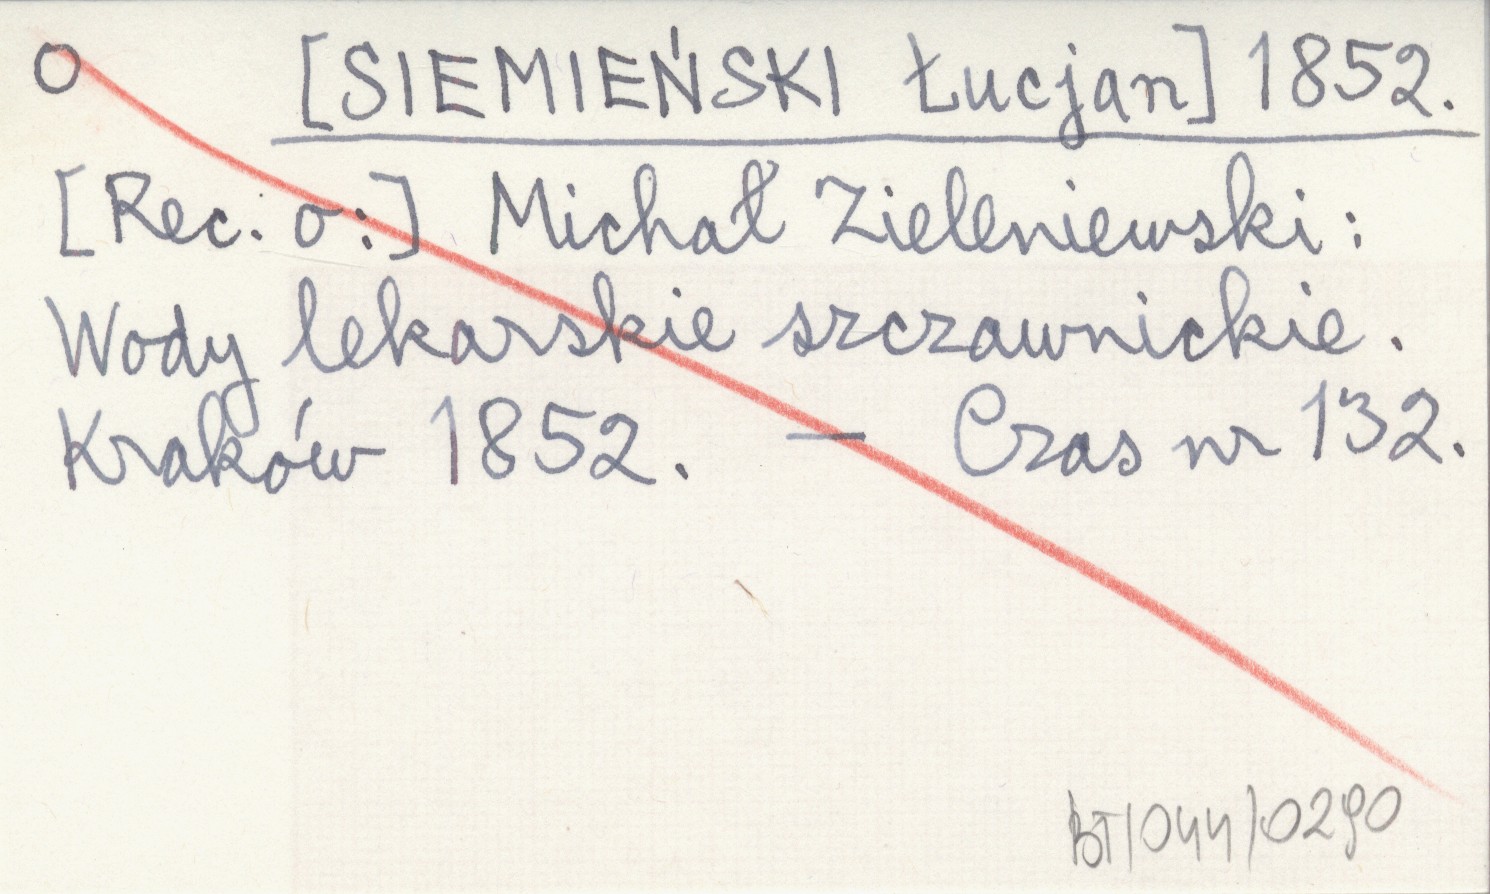 O [SIEMIEŃSKI Łucjan] 1852.
[Rec. o:] Michał Zieleniewski:
Wody lekarskie szczawnickie.
Kraków 1852. — Czas nr 132.
BT/044/0290